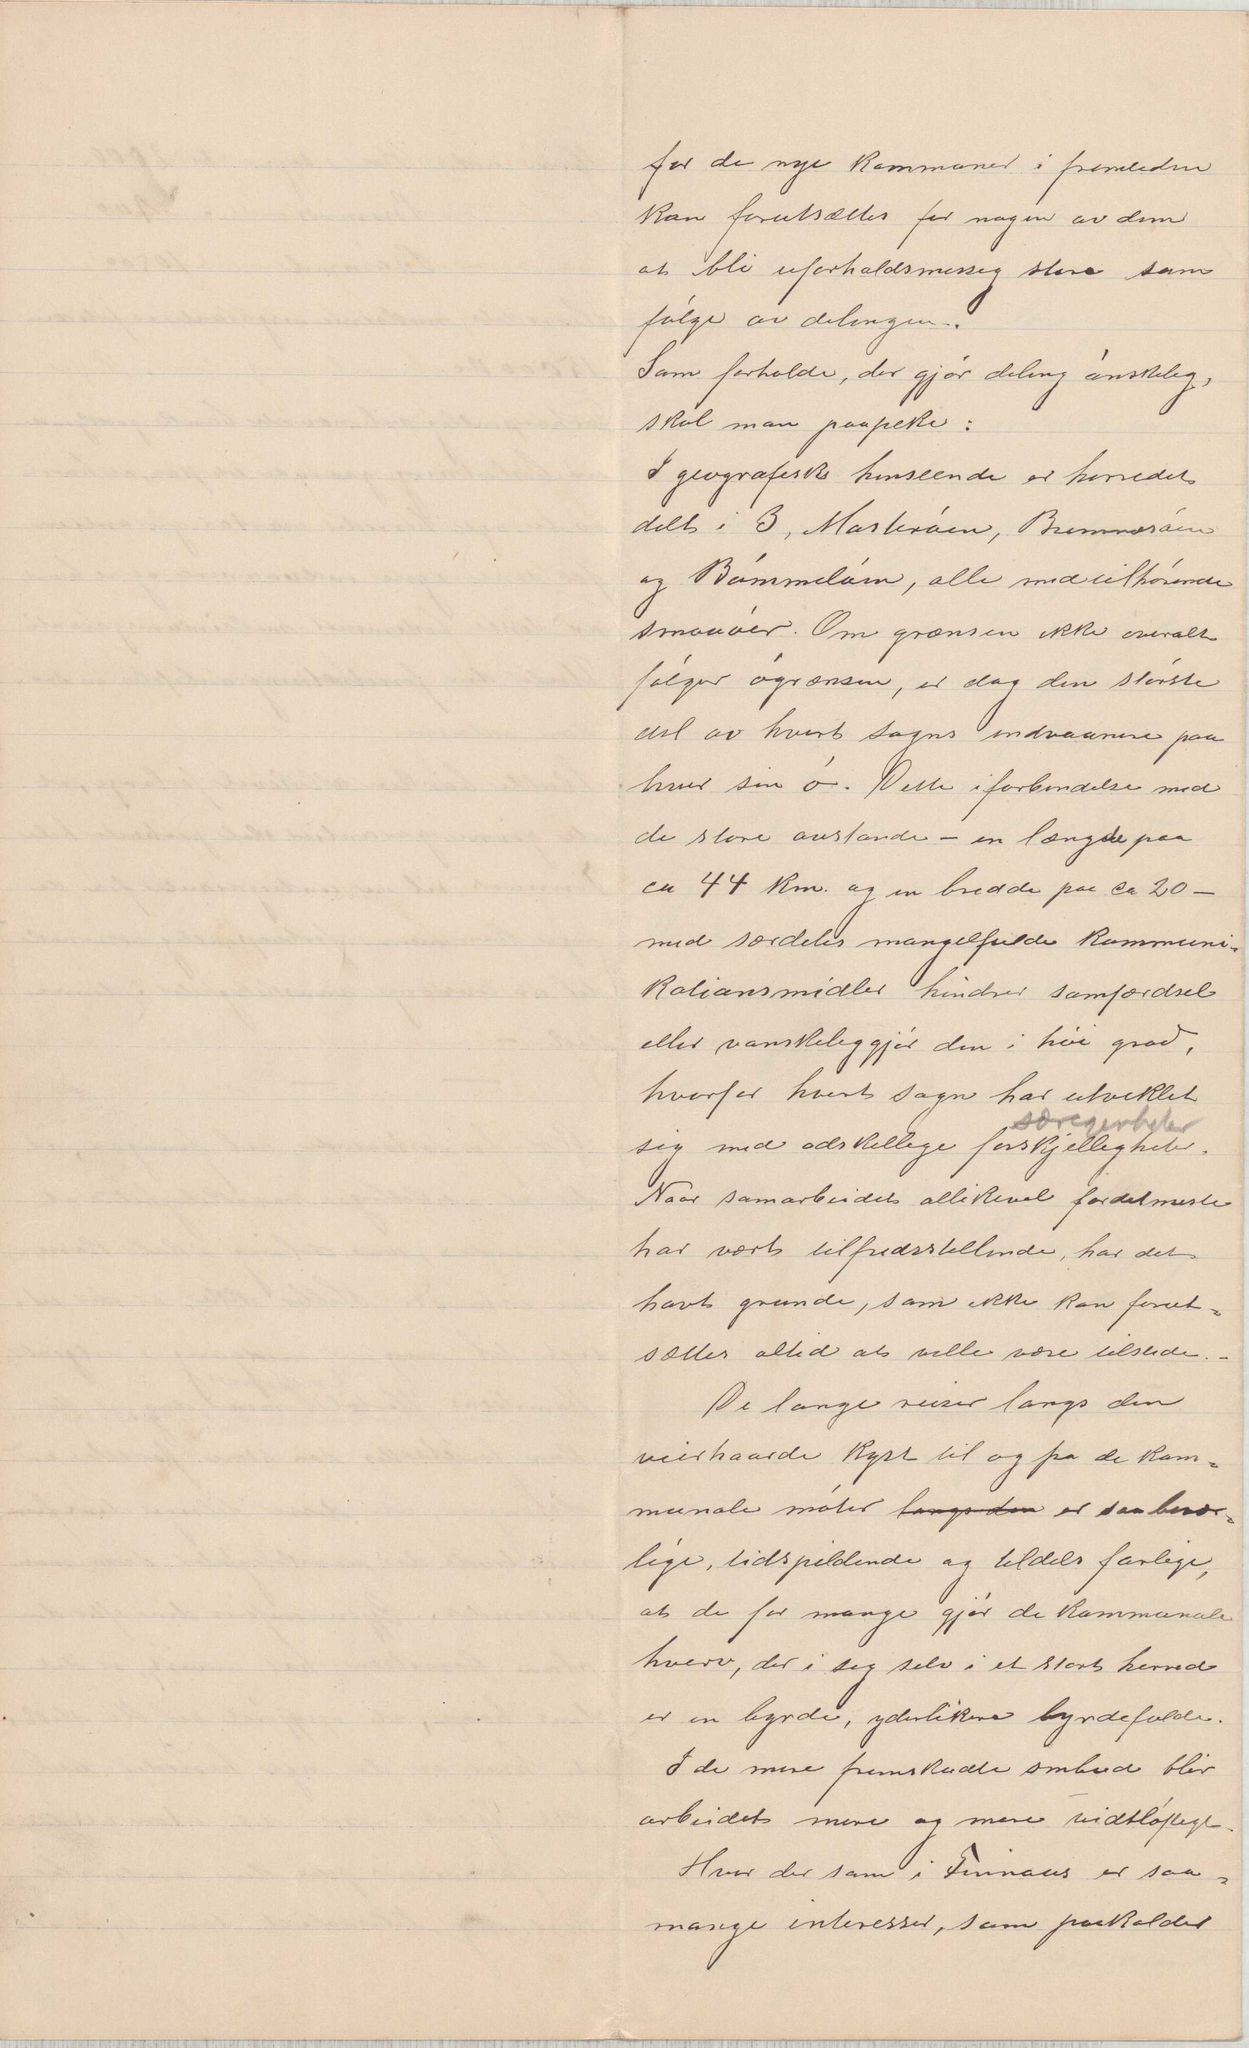 for de nye kommuner i fremtiden
kan forutsættes for nogen av dem
at bli uforholdsmessig store som
følge av delingen.
Som forholde, der gjør deling ønskelig,
skal man paapeke:
I geografisk henseende er herredet
delt i 3, Mosterøen, Bremnesøen
og Bømmeløen, alle med tilhørende
smaaøer. Om grænsen ikke overalt
følger øgrænsen, er dog den største
del av hvert sogns indvaanere paa
hver sin ø. Dette i forbindelse med
de store avstande - en længde paa
ca 44 km. og en bredde paa ca 20 -
med særdeles mangelfulde kommuni-
kationsmidler hindrer samfærdsel
eller vanskeliggjør den i høi grad,
hvorfor hvert sogn har utviklet
særegenheter
sig med adskillige forskjelligheter.
Naar samarbeidet allikevel fordetmeste
har vært tilfredsstillende, har det
havt grunde, som ikke kan forut-
sættes altid at ville være tilstede. -
De lange reiser langs den
veirhaarde kyst til og fra de kom-
munale møter langs den er saa besvær-
lige, tidspildende og tildels farlige,
at de for mange gjør de kommunale
hverv, der i sig selv i et stort herred
er en byrde, yderlikere byrdefulde.
I de mere fremskudte ombud blir
arbeidet mere og mere vidtløftigt.
Hvor der som i Finnaas er saa-
mange interesser, som paakalder